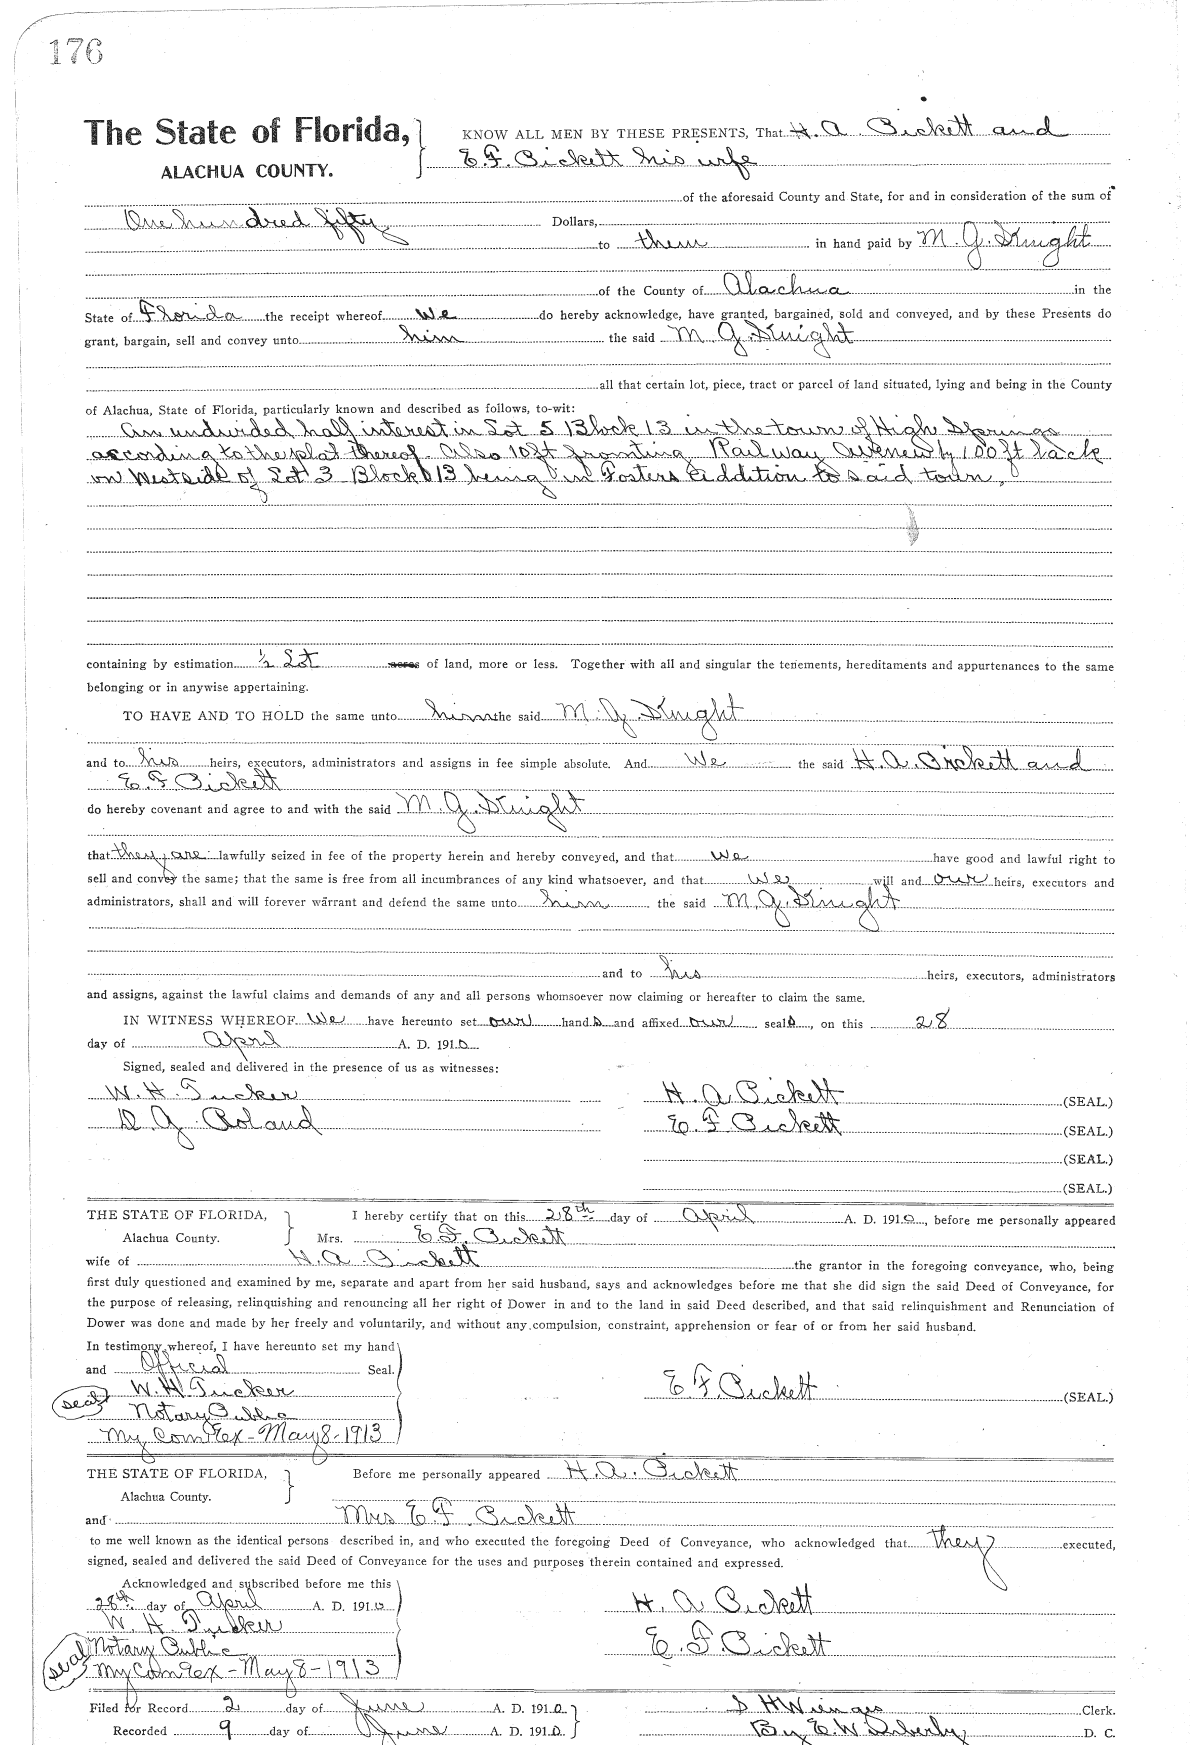 176
The State of Florida,
ALACHUA COUNTY.
KNOW ALL MEN BY THESE PRESENTS, That H. A. Pickett and
E. F. Pickett his wife
of the aforesaid County and State, for and in consideration of the sum of
One hundred fifty Dollars,
to them in hand paid by M. G. Knight
of the County of Alachua in the
State of Florida the receipt whereof We do hereby acknowledge, have granted, bargained, sold and conveyed, and by these Presents do
grant, bargain, sell and convey unto him the said M. G. Knight
all that certain lot, piece, tract or parcel of land situated, lying and being in the County
of Alachua, State of Florida, particularly known and described as follows, to-wit:
An undivided half interest in Lot 5 Block 13 in the town of High Springs
according to the plat thereof. Also 10 ft fronting Railway Avenew by 100 ft back
on West side of Lot 3 Block 13 being in Fosters addition to said town,
containing by estimation ½ Lot acres of land, more or less. Together with all and singular the tenements, hereditaments and appurtenances to the same
belonging or in anywise appertaining.
TO HAVE AND TO HOLD the same unto him the said M. G. Knight
and to his heirs, executors, administrators and assigns in fee simple absolute. And We the said H. A. Pickett and
E. F Pickett
do hereby covenant and agree to and with the said M. G. Knight
that they are lawfully seized in fee of the property herein and hereby conveyed, and that we have good and lawful right to
sell and convey the same; that the same is free from all incumbrances of any kind whatsoever, and that we will and our heirs, executors and
administrators, shall and will forever warrant and defend the same unto him the said M. G. Knight
and to his heirs, executors, administrators
and assigns, against the lawful claims and demands of any and all persons whomsoever now claiming or hereafter to claim the same.
IN WITNESS WHEREOF We have hereunto set our hands and affixed our seals, on this 28
day of April A. D. 1910
Signed, sealed and delivered in the presence of us as witnesses:
W. H. Tucker H. A Pickett (SEAL.)
D. G. Roland E. F Pickett (SEAL.)
(SEAL.)
(SEAL.)
THE STATE OF FLORIDA, I hereby certify that on this 28th day of April A. D. 1910, before me personally appeared
Alachua County. Mrs. E. F. Pickett
wife of H. A. Pickett the grantor in the foregoing conveyance, who, being
first duly questioned and examined by me, separate and apart from her said husband, says and acknowledges before me that she did sign the said Deed of Conveyance, for
the purpose of releasing, relinquishing and renouncing all her right of Dower in and to the land in said Deed described, and that said relinquishment and Renunciation of
Dower was done and made by her freely and voluntarily, and without any compulsion, constraint, apprehension or fear of or from her said husband.
In testimony whereof, I have hereunto set my hand
and Official Seal.
W. H. Tucker E F. Pickett (SEAL.)
seal Notary Public
My Com Ex - May 8 - 1913
THE STATE OF FLORIDA, Before me personally appeared H. A. Pickett
Alachua County.
and Mrs E. F. Pickett
to me well known as the identical persons described in, and who executed the foregoing Deed of Conveyance, who acknowledged that they executed,
signed, sealed and delivered the said Deed of Conveyance for the uses and purposes therein contained and expressed.
Acknowledged and subscribed before me this
28th day of April A. D. 1910 H. A Pickett
W. H Tucker
seal Notary Public E. F. Pickett
My Com Ex - May 8 - 1913
Filed for Record 2 day of June A. D. 1910 S H Wienges Clerk.
Recorded 9 day of June A. D. 1910. By E. W. D. C.